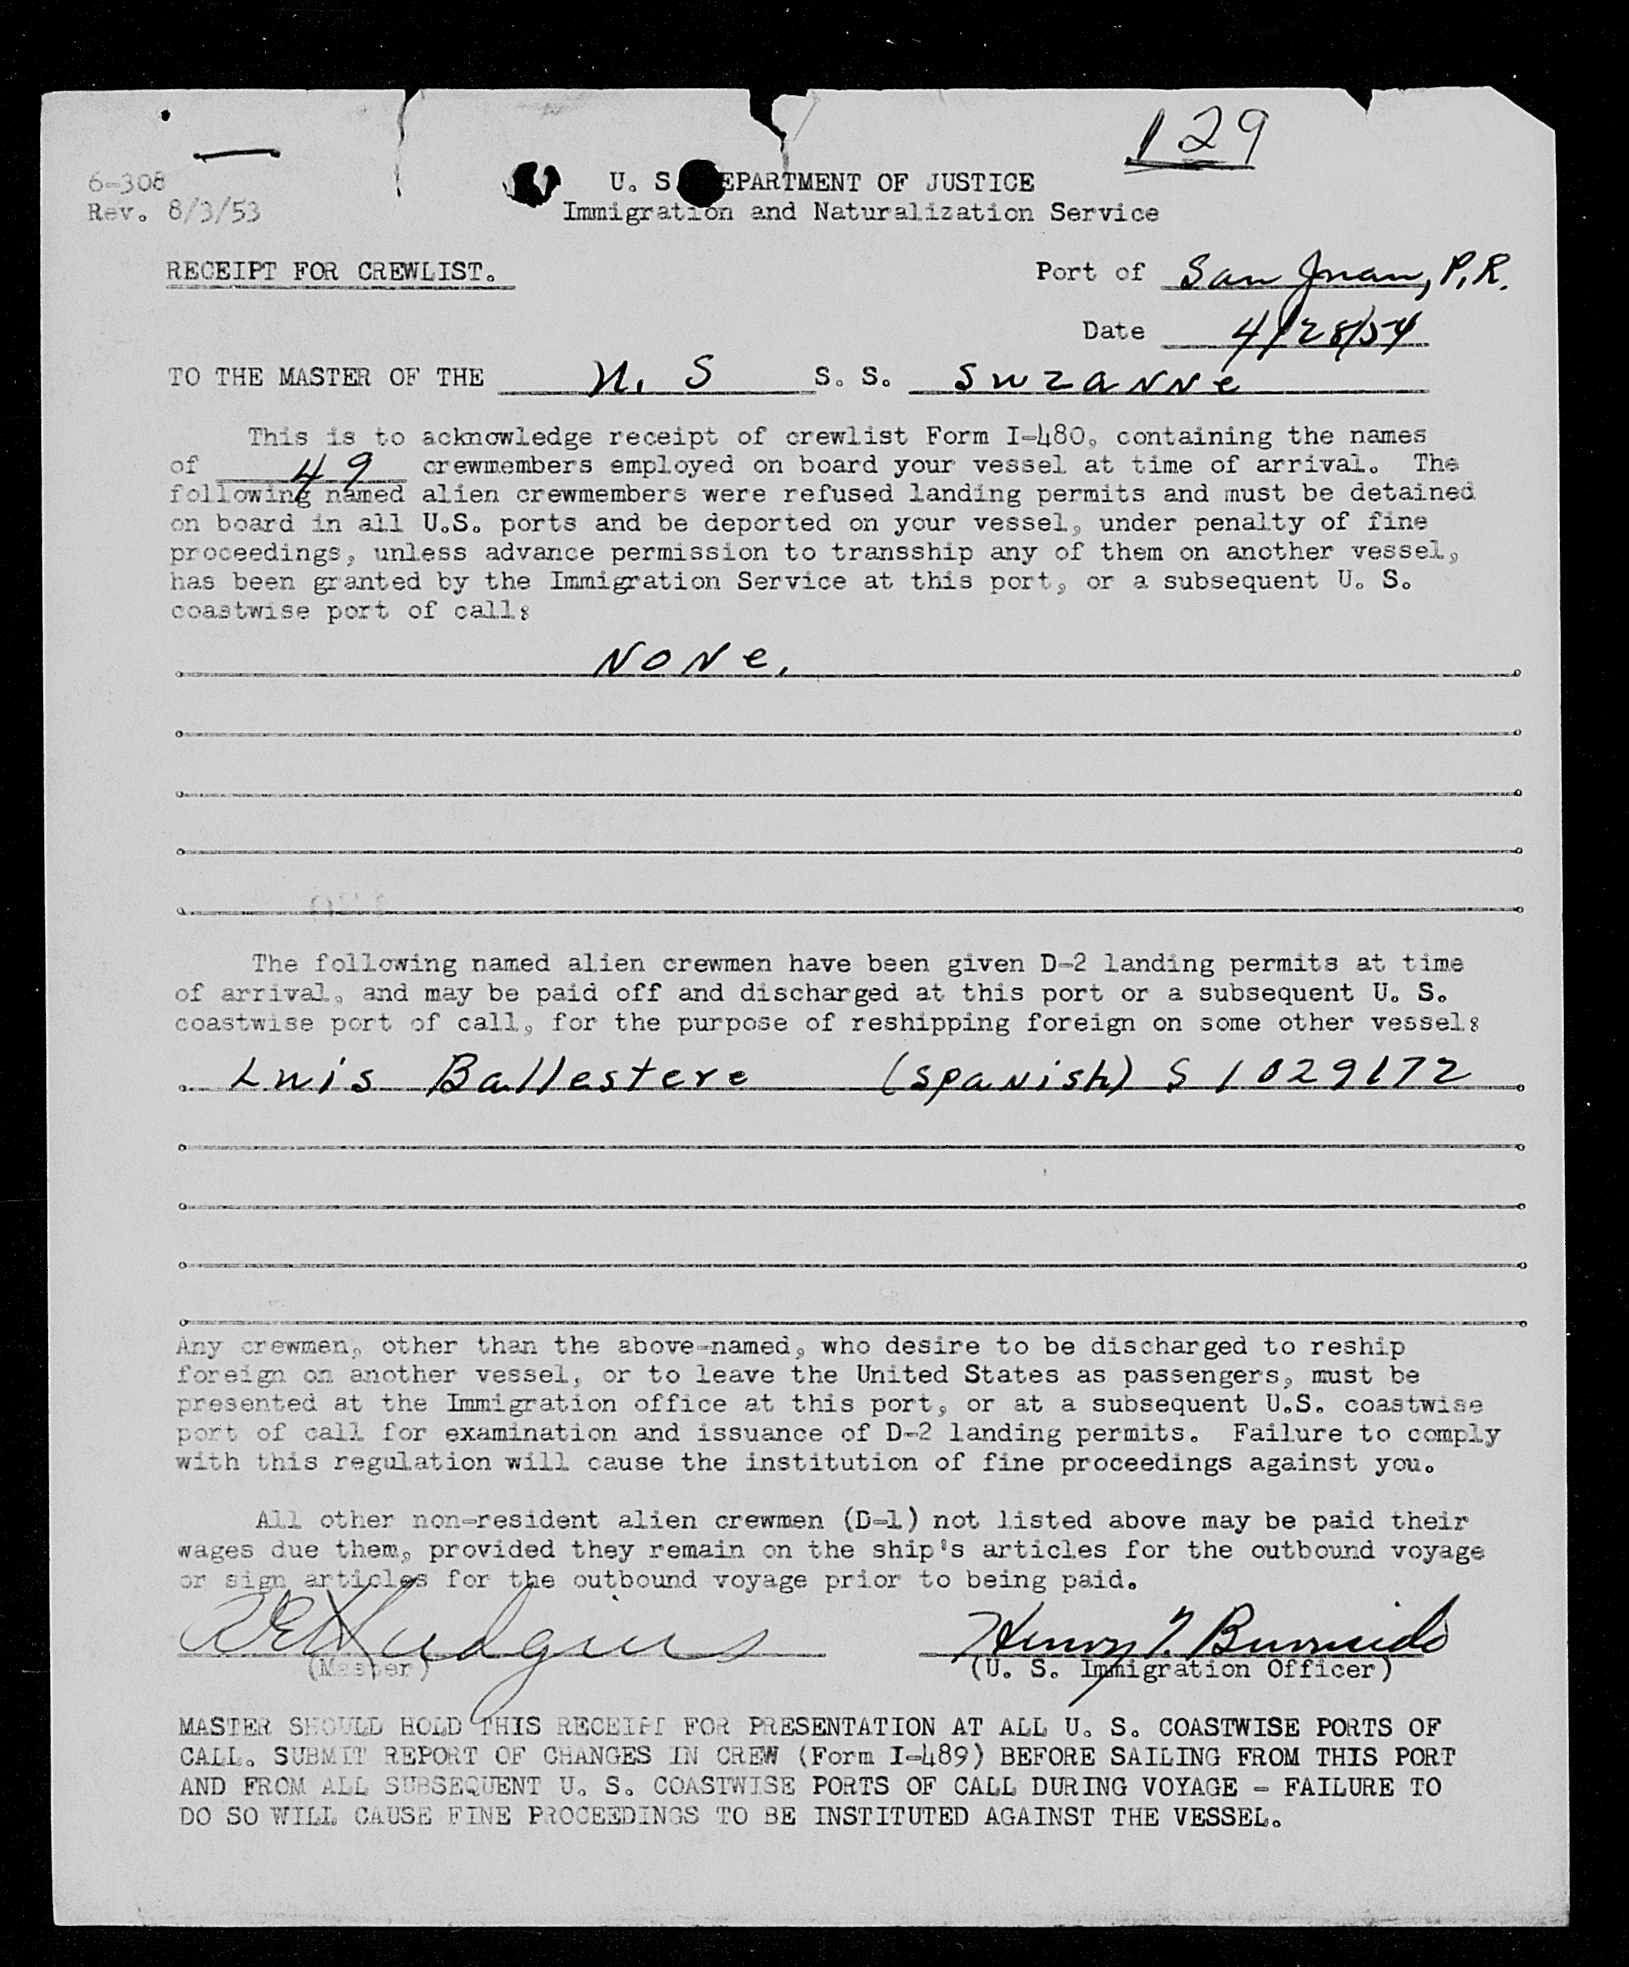 129
6-308
U. S. DEPARTMENT OF JUSTICE
Rev. 8/3/53
Immigration and Naturalization Service
RECEIPT FOR CREWLIST.
Port of San Juan, P.R.
Date 4/28/54
TO THE MASTER OF THE U. S S. S. Suzanne
This is to acknowledge receipt of crewlist Form I-480, containing the names
of 49 crewmembers employed on board your vessel at time of arrival. The
following named alien crewmembers were refused landing permits and must be detained
on board in all U.S. ports and be deported on your vessel, under penalty of fine
proceedings, unless advance permission to transship any of them on another vessel,
has been granted by the Immigration Service at this port, or a subsequent U. S.
coastwise port of call:
None.
The following named alien crewmen have been given D-2 landing permits at time
of arrival, and may be paid off and discharged at this port or a subsequent U. S.
coastwise port of call, for the purpose of reshipping foreign on some other vessel:
Luis Ballestere (Spanish) S 1029172
Any crewmen, other than the above-named, who desire to be discharged to reship
foreign on another vessel, or to leave the United States as passengers, must be
presented at the Immigration office at this port, or at a subsequent U.S. coastwise
port of call for examination and issuance of D-2 landing permits. Failure to comply
with this regulation will cause the institution of fine proceedings against you.
All other non-resident alien crewmen (D-1) not listed above may be paid their
wages due them, provided they remain on the ship's articles for the outbound voyage
or sign articles for the outbound voyage prior to being paid.
Hudgins Henry T. Burnside
(Master) (U. S. Immigration Officer)
MASTER SHOULD HOLD THIS RECEIPT FOR PRESENTATION AT ALL U. S. COASTWISE PORTS OF
CALL. SUBMIT REPORT OF CHANGES IN CREW (Form I-489) BEFORE SAILING FROM THIS PORT
AND FROM ALL SUBSEQUENT U. S. COASTWISE PORTS OF CALL DURING VOYAGE - FAILURE TO
DO SO WILL CAUSE FINE PROCEEDINGS TO BE INSTITUTED AGAINST THE VESSEL.